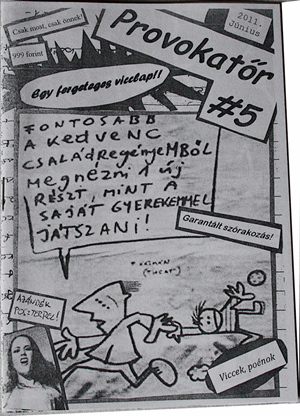 Csak most, csak önnek!
999 forint
Provokatőr
2011. Június
#5
Egy fergeteges vicclap!!
FONTOSABB
A KEDVENC
CSALÁDREGÉNYEMBŐL
MEGNÉZNI 1 ÚJ
RÉSZT, MINT A
SAJÁT GYEREKEMMEL
JÁTSZANI!
Garantált szórakozás!
AJÁNDÉK
POSZTERREL!
Viccek, poénok